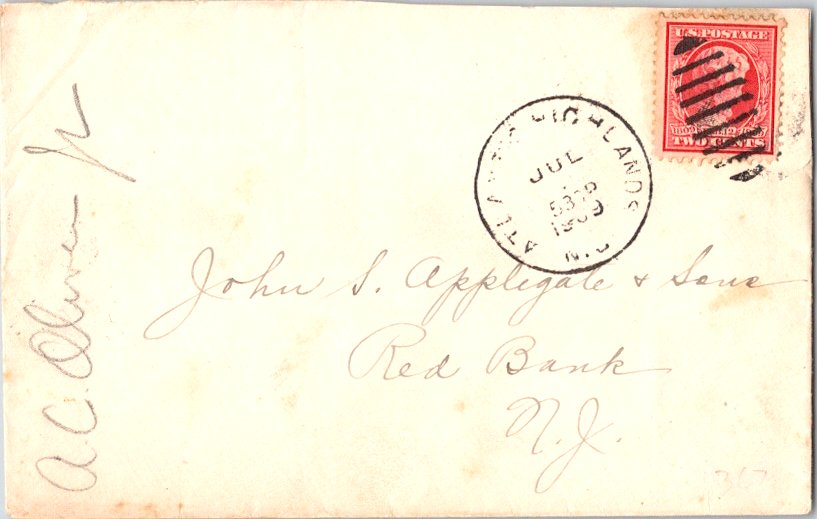 U.S. POSTAGE
TWO CENTS
ATLANTIC HIGHLANDS
N.J.
JUL
1909
John S. Applegate & Sons
Red Bank
N.J.
A C
Jr
367